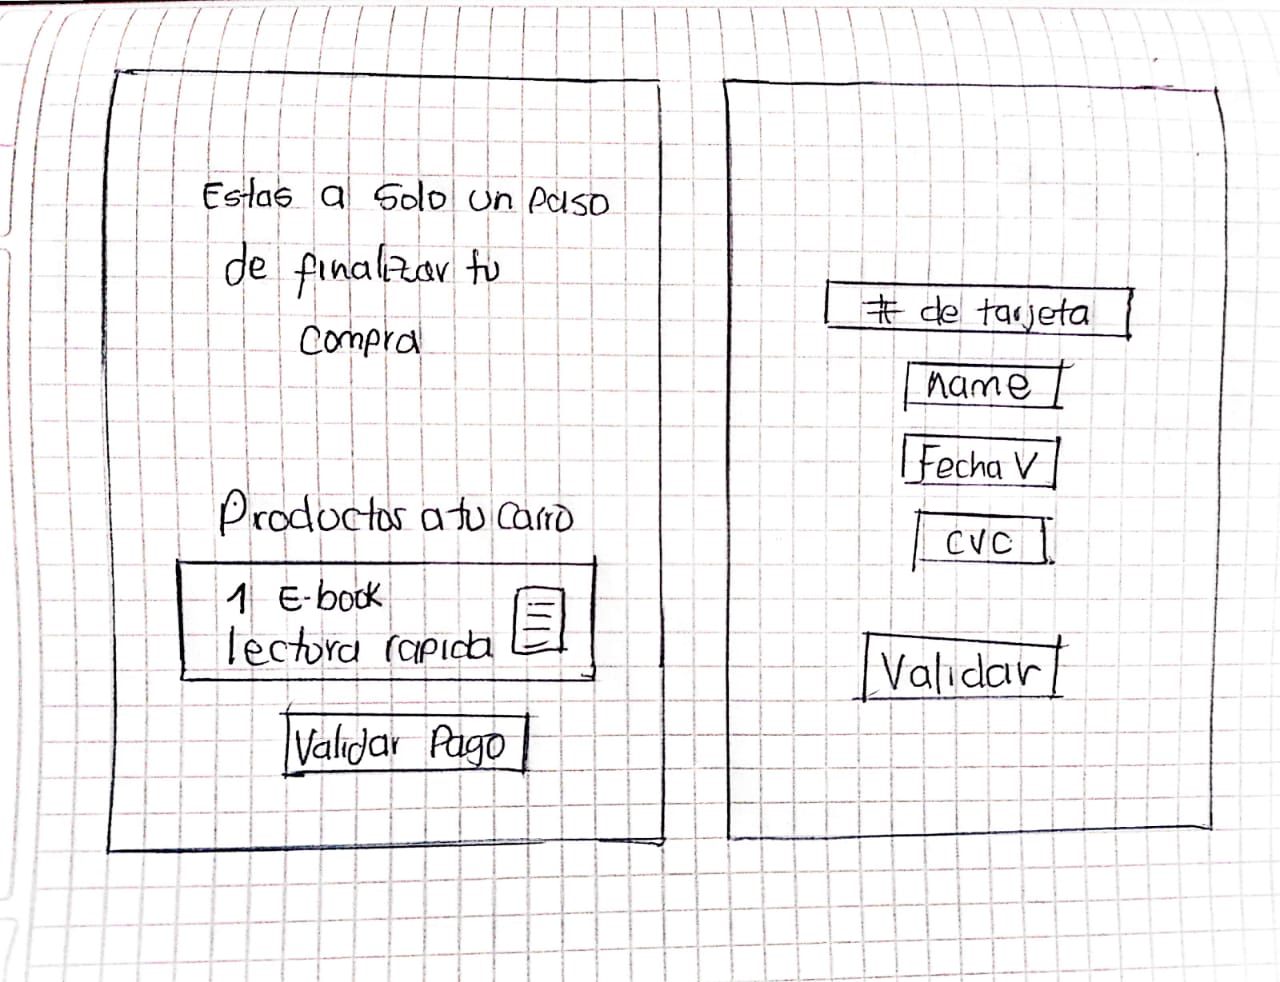 Estas a solo un paso
de finalizar tu
compra
Productos a tu carro
1 E-book
lectora rapida
Validar Pago
# de tarjeta
name
Fecha V
CVC
Validar